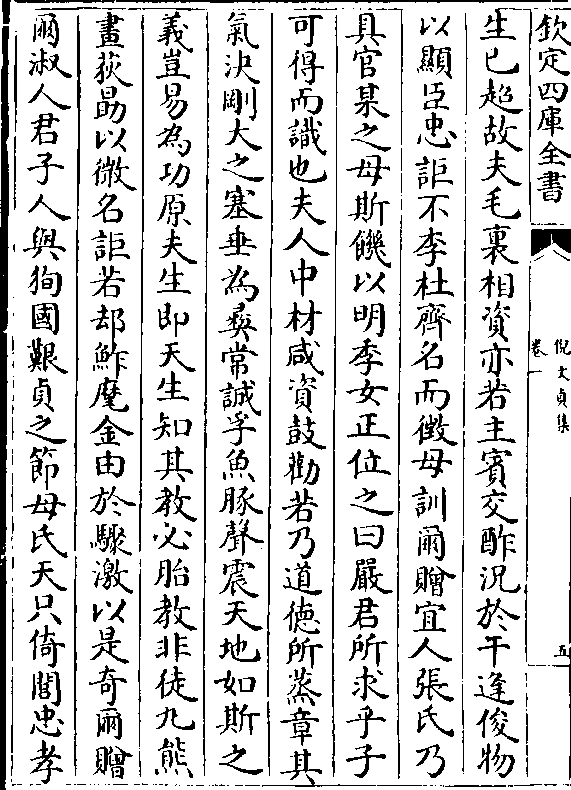 欽定四庫全書
倪文貞集
卷一
五
生已超故夫毛裏相資亦若主賓交酢況於干逢俊物
以顯臣忠詎不李杜齊名而徴母訓爾贈宜人張氏乃
具官某之母斯饑以明季女正位之曰嚴君所求乎子
可得而識也夫人中材咸資鼓勸若乃道徳所蒸章其
氣決剛大之塞垂為彛常誠孚魚豚聲震天地如斯之
義豈易為功原夫生即天生知其教必胎教非徒九熊
畫荻勗以微名詎若却鮓麾金由於驟激以是奇爾贈
爾淑人君子人與狥國艱貞之節母氏天只倚閭忠孝